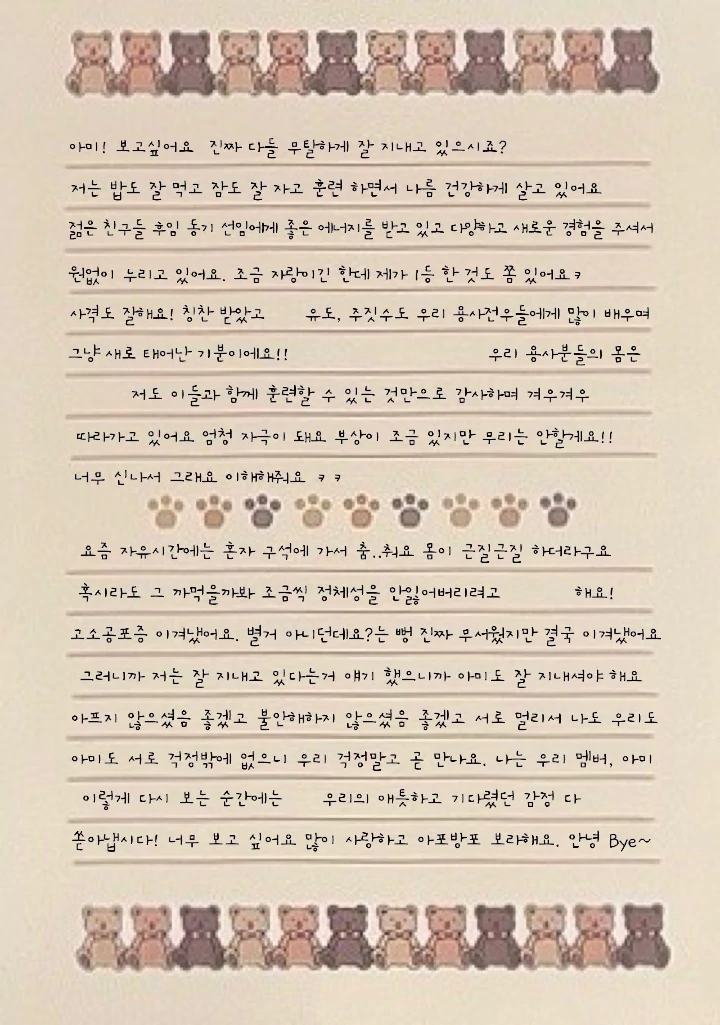 아미! 보고싶어요 진짜 다들 무탈하게 잘 지내고 있으시죠?
저는 밥도 잘 먹고 잠도 잘 자고 훈련 하면서 나름 건강하게 살고 있어요
젊은 친구들 후임 동기 선임에게 좋은 에너지를 받고 있고 다양하고 새로운 경험을 주셔서
원없이 누리고 있어요. 조금 자랑이긴 한데 제가 1등 한 것도 쫌 있어요ㅋ
사격도 잘해요! 칭찬 받았고 유도, 주짓수도 우리 용사전우들에게 많이 배우며
그냥 새로 태어난 기분이에요!! 우리 용사분들의 몸은
저도 이들과 함께 훈련할 수 있는 것만으로 감사하며 겨우겨우
따라가고 있어요 엄청 자극이 돼요 부상이 조금 있지만 무리는 안할게요!!
너무 신나서 그래요 이해해줘요 ㅋㅋ
요즘 자유시간에는 혼자 구석에 가서 춤..춰요 몸이 근질근질 하더라구요
혹시라도 그 까먹을까봐 조금씩 정체성을 안잃어버리려고 해요!
고소공포증 이겨냈어요. 별거 아니던데요?는 뻥 진짜 무서웠지만 결국 이겨냈어요
그러니까 저는 잘 지내고 있다는거 얘기 했으니까 아미도 잘 지내셔야 해요
아프지 않으셨음 좋겠고 불안해하지 않으셨음 좋겠고 서로 멀리서 나도 우리도
아미도 서로 걱정밖에 없으니 우리 걱정말고 곧 만나요. 나는 우리 멤버, 아미
이렇게 다시 보는 순간에는 우리의 애틋하고 기다렸던 감정 다
쏟아냅시다! 너무 보고 싶어요 많이 사랑하고 아포방포 보라해요. 안녕 Bye~